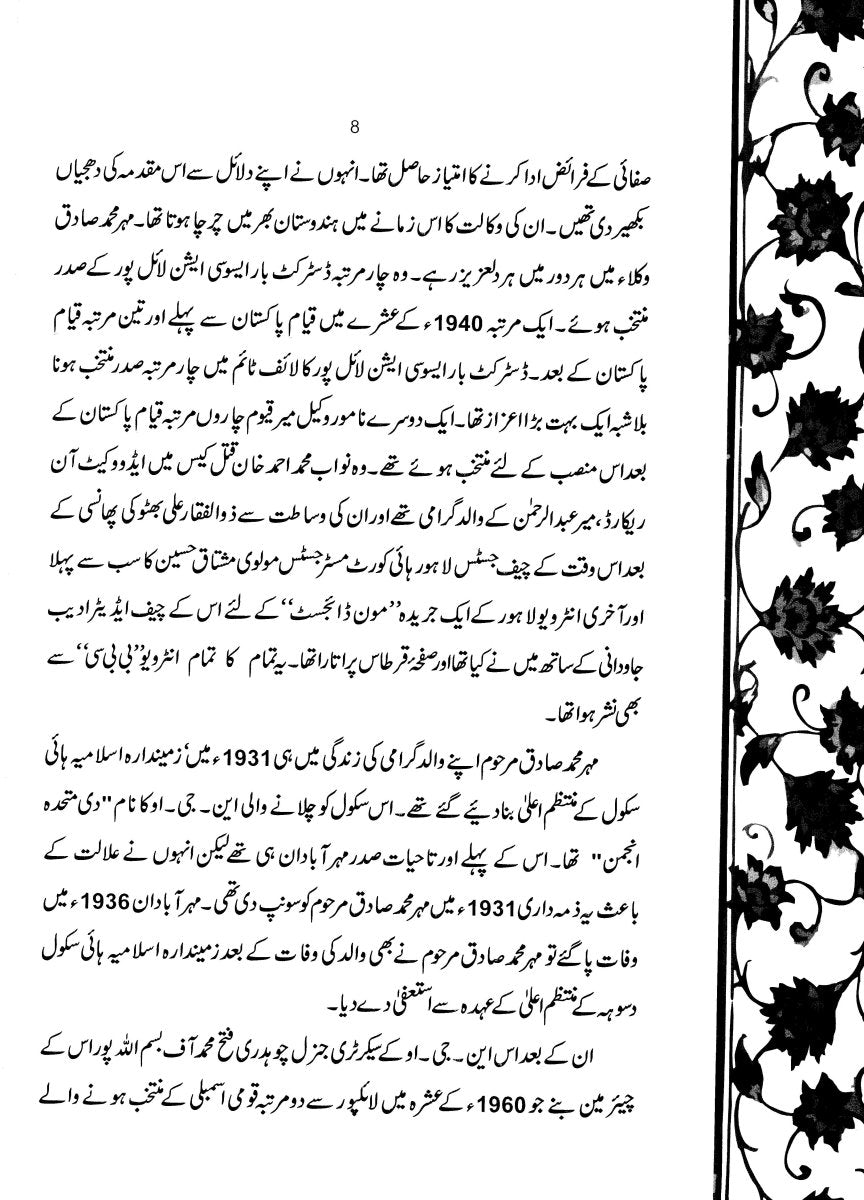 8
صفائی کے فرائض ادا کرنے کا امتیاز حاصل تھا۔ انہوں نے اپنے دلائل سے اس مقدمہ کی دھجیاں
بکھیر دی تھیں۔ ان کی وکالت کا اس زمانے میں ہندوستان بھر میں چرچا ہوتا تھا۔ مہر محمد صادق
وکلاء میں ہر دور میں ہر دلعزیز رہے۔ وہ چار مرتبہ ڈسٹرکٹ بار ایسوسی ایشن لائل پور کے صدر
منتخب ہوئے۔ ایک مرتبہ 1940ء کے عشرے میں قیام پاکستان سے پہلے اور تین مرتبہ قیام
پاکستان کے بعد۔ ڈسٹرکٹ بار ایسوسی ایشن لائل پور کا لائف ٹائم میں چار مرتبہ صدر منتخب ہونا
بلا شبہ ایک بہت بڑا اعزاز تھا۔ ایک دوسرے نامور وکیل میر قیوم چاروں مرتبہ قیام پاکستان کے
بعد اس منصب کے لئے منتخب ہوئے تھے۔ وہ نواب محمد احمد خان قتل کیس میں ایڈووکیٹ آن
ریکارڈ، میر عبدالرحمٰن کے والد گرامی تھے اور ان کی وساطت سے ذوالفقار علی بھٹو کی پھانسی کے
بعد اس وقت کے چیف جسٹس لاہور ہائی کورٹ مسٹر جسٹس مولوی مشتاق حسین کا سب سے پہلا
اور آخری انٹرویو لاہور کے ایک جریدہ ’’مون ڈائجسٹ‘‘ کے لئے اس کے چیف ایڈیٹر ادیب
جاودانی کے ساتھ میں نے کیا تھا اور صفحۂ قرطاس پر اتارا تھا۔ یہ تمام کا تمام انٹرویو ’’بی بی سی‘‘ سے
بھی نشر ہوا تھا۔
مہر محمد صادق مرحوم اپنے والد گرامی کی زندگی میں ہی 1931ء میں‘ زمیندارہ اسلامیہ ہائی
سکول کے منتظم اعلیٰ بنا دیئے گئے تھے۔ اس سکول کو چلانے والی این۔ جی۔ او کا نام "دی متحدہ
انجمن" تھا۔ اس کے پہلے اور تا حیات صدر مہر آبادان ہی تھے لیکن انہوں نے علالت کے
باعث یہ ذمہ داری 1931ء میں مہر محمد صادق مرحوم کو سونپ دی تھی۔ مہر آبادان 1936ء میں
وفات پا گئے تو مہر محمد صادق مرحوم نے بھی والد کی وفات کے بعد زمیندارہ اسلامیہ ہائی سکول
دسوہہ کے منتظم اعلیٰ کے عہدہ سے استعفیٰ دے دیا۔
ان کے بعد اس این۔ جی۔ او کے سیکرٹری جنرل چوہدری فتح محمد آف بسم اللہ پور اس کے
چیئر مین بنے جو 1960ء کے عشرہ میں لائلپور سے دو مرتبہ قومی اسمبلی کے منتخب ہونے والے